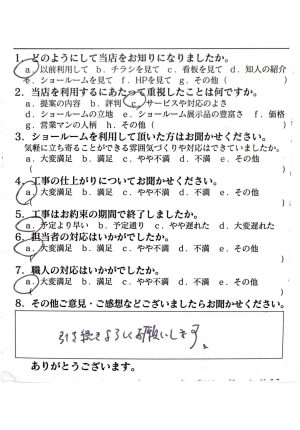 1. どのようにして当店をお知りになりましたか。
a. 以前利用して b. チラシを見て c. 看板を見て d. 知人の紹介
e. ショールームを見て f. HPを見て g. その他 (
2. 当店を利用するにあたって重視したことは何ですか。
a. 提案の内容 b. 評判 c. サービスや対応のよさ
d. ショールームの立地 e. ショールーム展示品の豊富さ f. 価格
g. 営業マンの人柄 h. その他 (
3. ショールームを利用して頂いた方はお聞かせください。
気軽に立ち寄ることができる雰囲気づくりや対応はできていましたか。
a. 大変満足 b. 満足 c. やや不満 d. 不満 e. その他
(
4. 工事の仕上がりについてお聞かせください。
a. 大変満足 b. 満足 c. やや不満 d. 不満 e. その他
(
5. 工事はお約束の期間で終了しましたか。
a. 予定より早い b. 予定通り c. やや遅れた d. 大変遅れた
6. 担当者の対応はいかがでしたか。
a. 大変満足 b. 満足 c. やや不満 d. 不満 e. その他
(
7. 職人の対応はいかがでしたか。
a. 大変満足 b. 満足 c. やや不満 d. 不満 e. その他
(
8. その他ご意見・ご感想などございましたらお聞かせください。
引き続きよろしくお願いします。
ありがとうございます。